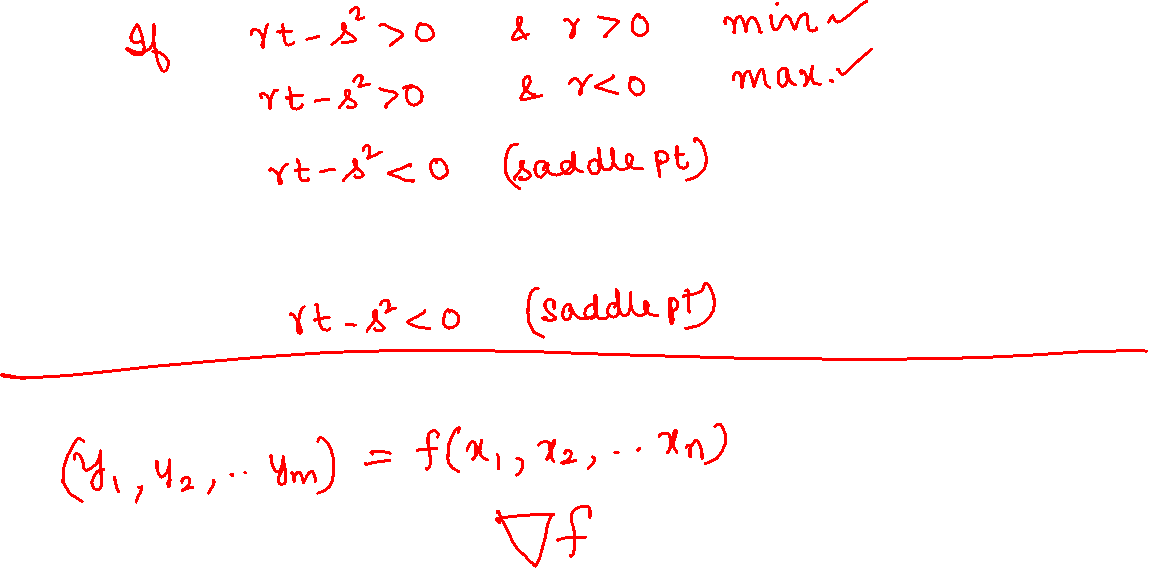 If rt - s² > 0 & r > 0 min ✓
rt - s² > 0 & r < 0 max. ✓
rt - s² < 0 (saddle pt)
rt - s² < 0 (saddle pt)
(y₁, y₂, .. yₘ) = f(x₁, x₂, .. xₙ)
∇f